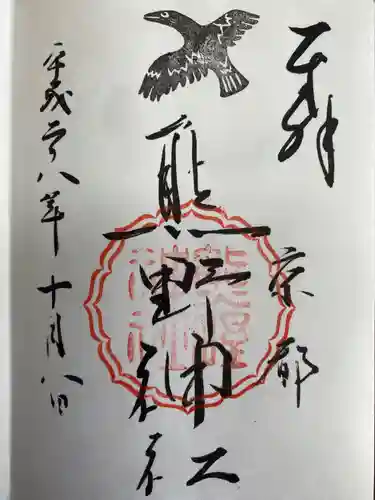 奉拝
京都
熊野神社
平成二八年十月八日